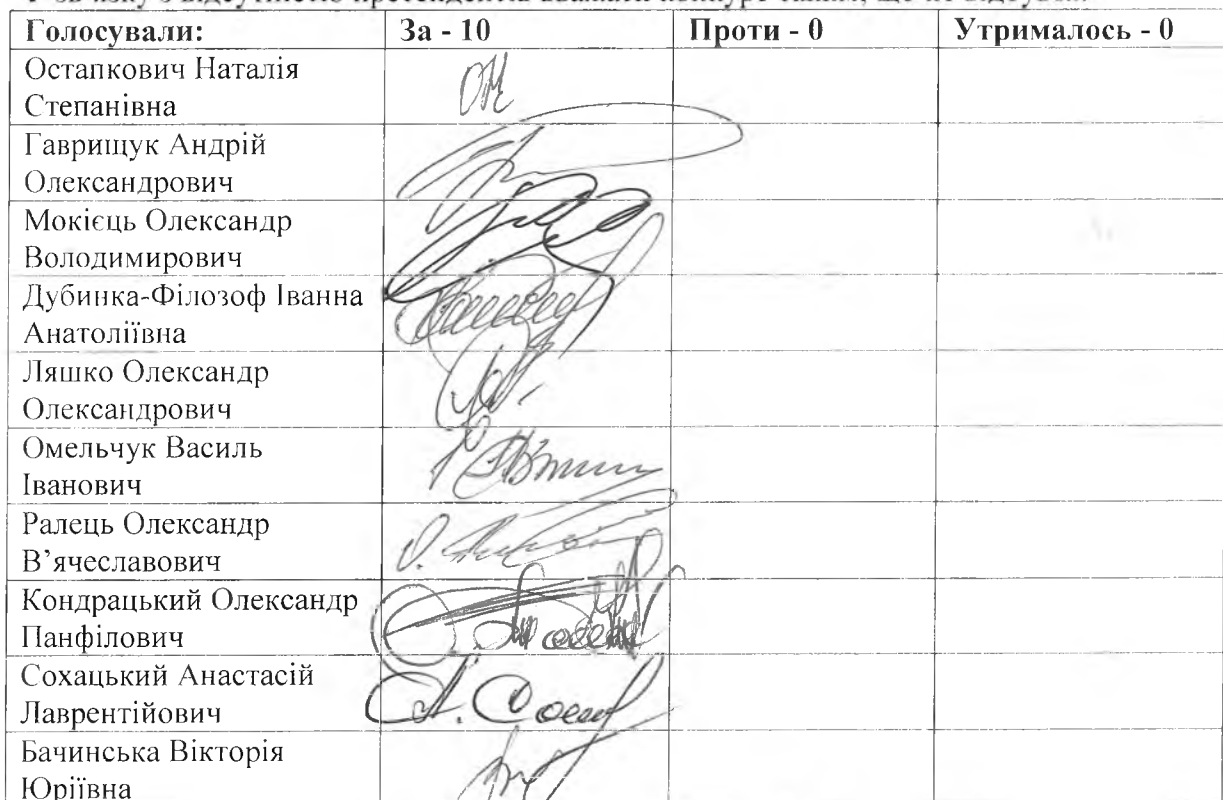 Голосували: За - 10 Проти - 0 Утрималось - 0
Остапкович Наталія
Степанівна
Гаврищук Андрій
Олександрович
Мокієць Олександр
Володимирович
Дубинка-Філозоф Іванна
Анатоліївна
Ляшко Олександр
Олександрович
Омельчук Василь
Іванович
Ралець Олександр
В’ячеславович
Кондрацький Олександр
Панфілович
Сохацький Анастасій
Лаврентійович
Бачинська Вікторія
Юріївна